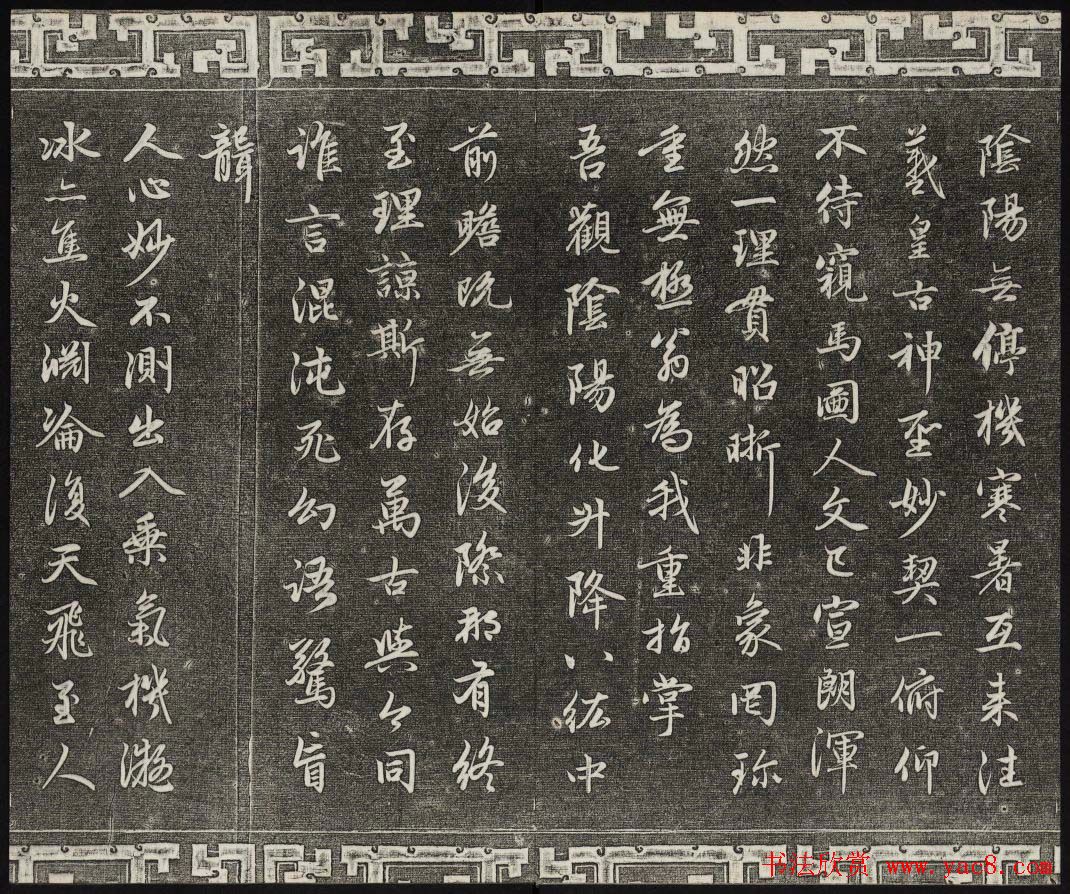 陰陽无停機寒暑互来往
羲皇古神聖妙契一俯仰
不待窺馬圖人文已宣朗渾
然一理貫昭晰非象罔珍
重無極翁為我重指掌
吾觀陰陽化升降八紘中
前瞻既無始後際那有終
至理諒斯存萬古與今同
誰言混沌死幻語驚盲
聾
人心妙不測出入乘氣機凝
冰亦焦火淵淪復天飛至人
书法欣赏 www.yac8.com